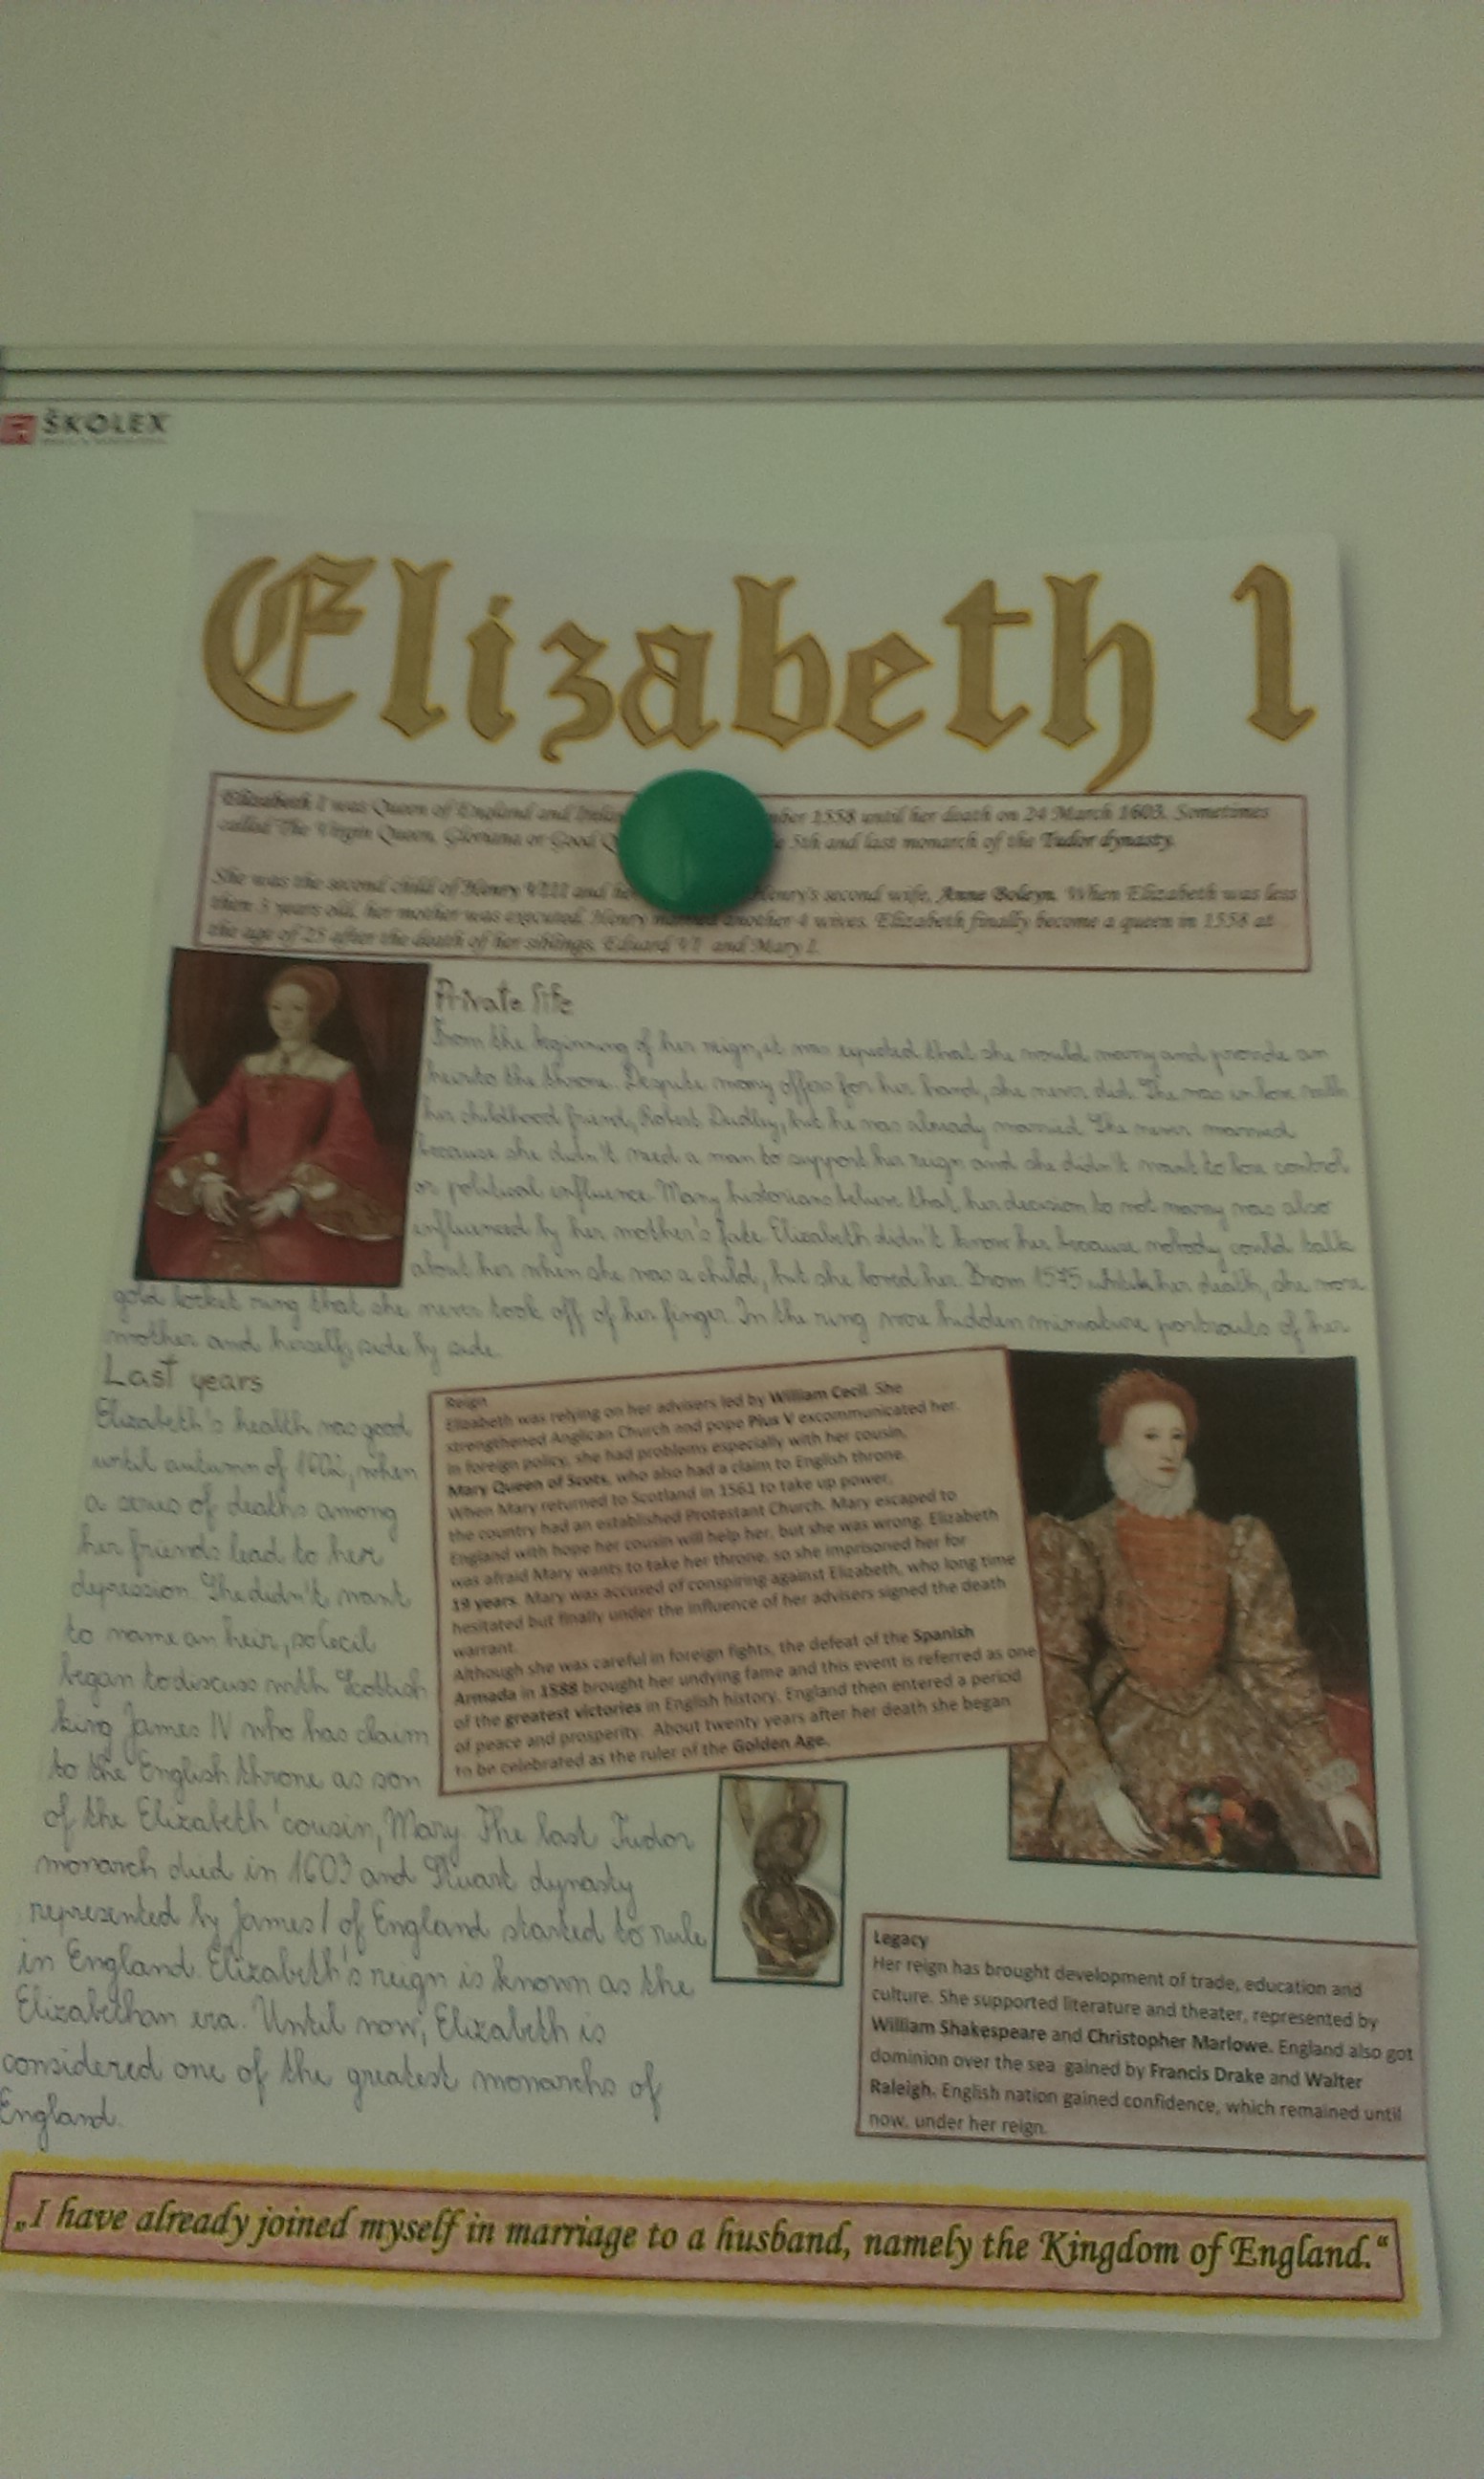 ŠKOLEX
Elizabeth 1
Elizabeth I was Queen of England and mber 1558 until her death on 24 March 1603. Sometimes
called The Virgin Queen, Gloriana or Good Q 5th and last monarch of the Tudor dynasty.
She was the second child of Henry VIII and he Henry's second wife, Anne Boleyn. When Elizabeth was less
then 3 years old, her mother was executed. Henry married another 4 wives. Elizabeth finally become a queen in 1558 at
the age of 25 after the death of her siblings, Eduard VI and Mary I.
Private life
From the beginning of her reign, it was expected that she would marry and provide an
heir to the throne. Despite many offers for her hand, she never did. She was in love with
her childhood friend, Robert Dudley, but he was already married. She never married
because she didn't need a man to support her reign and she didn't want to lose control
or political influence. Many historians believe that, her decision to not marry was also
influenced by her mother's fate. Elizabeth didn't know her because nobody could talk
about her when she was a child, but she loved her. From 1575 her death, she wore
gold locket ring that she never took off of her finger. In the ring were hidden miniature portraits of her
mother and herself, side by side.
Last years
Elizabeth's health was good
until autumn of 1602, when
a series of deaths among
her friends lead to her
depression. She didn't want
to name an heir, so Cecil
began to discuss with Scottish
king James IV who has claim
to the English throne as son
of the Elizabeth' cousin, Mary. The last Tudor
monarch died in 1603 and Stuart dynasty
represented by James I of England started to rule
in England. Elizabeth's reign is known as the
Elizabethan era. Until now, Elizabeth is
considered one of the greatest monarchs of
England.
Reign
Elizabeth was relying on her advisers led by William Cecil. She
strengthened Anglican Church and pope Pius V excommunicated her.
In foreign policy, she had problems especially with her cousin,
Mary Queen of Scots, who also had a claim to English throne.
When Mary returned to Scotland in 1561 to take up power,
the country had an established Protestant Church. Mary escaped to
England with hope her cousin will help her, but she was wrong. Elizabeth
was afraid Mary wants to take her throne, so she imprisoned her for
19 years. Mary was accused of conspiring against Elizabeth, who long time
hesitated but finally under the influence of her advisers signed the death
warrant.
Although she was careful in foreign fights, the defeat of the Spanish
Armada in 1588 brought her undying fame and this event is referred as one
of the greatest victories in English history. England then entered a period
of peace and prosperity. About twenty years after her death she began
to be celebrated as the ruler of the Golden Age.
Legacy
Her reign has brought development of trade, education and
culture. She supported literature and theater, represented by
William Shakespeare and Christopher Marlowe. England also got
dominion over the sea gained by Francis Drake and Walter
Raleigh. English nation gained confidence, which remained until
now, under her reign.
„I have already joined myself in marriage to a husband, namely the Kingdom of England.“